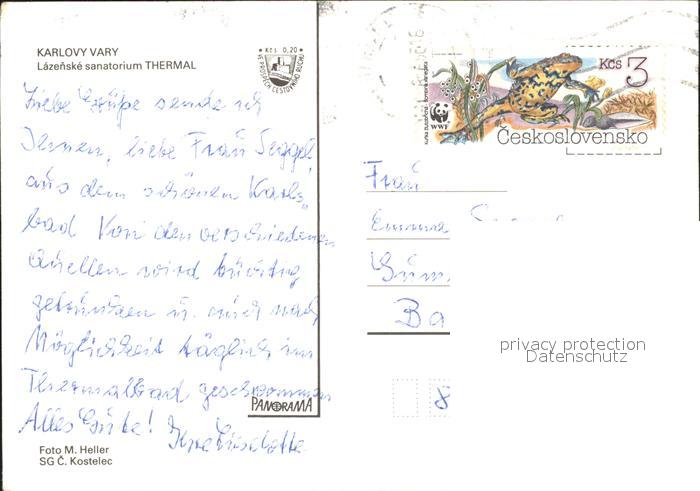 KARLOVY VARY
Lázeňské sanatorium THERMAL
Kčs 0,20
VE PROSPĚCH CESTOVNÍHO RUCHU
Liebe Grüße sende ich
Ihnen, liebe Frau
aus dem schönen Karls„
bad Von den verschiedenen
Quellen wird tüchtig
getrunken u. auch nach
Möglichkeit täglich im
Thermalbad geschwommen
Alles Gute! Ihre Liselotte
PANORAMA
Foto M. Heller
SG Č. Kostelec
Kčs 3
WWF
Československo
Frau
Emma
Ba
8
privacy protection
Datenschutz